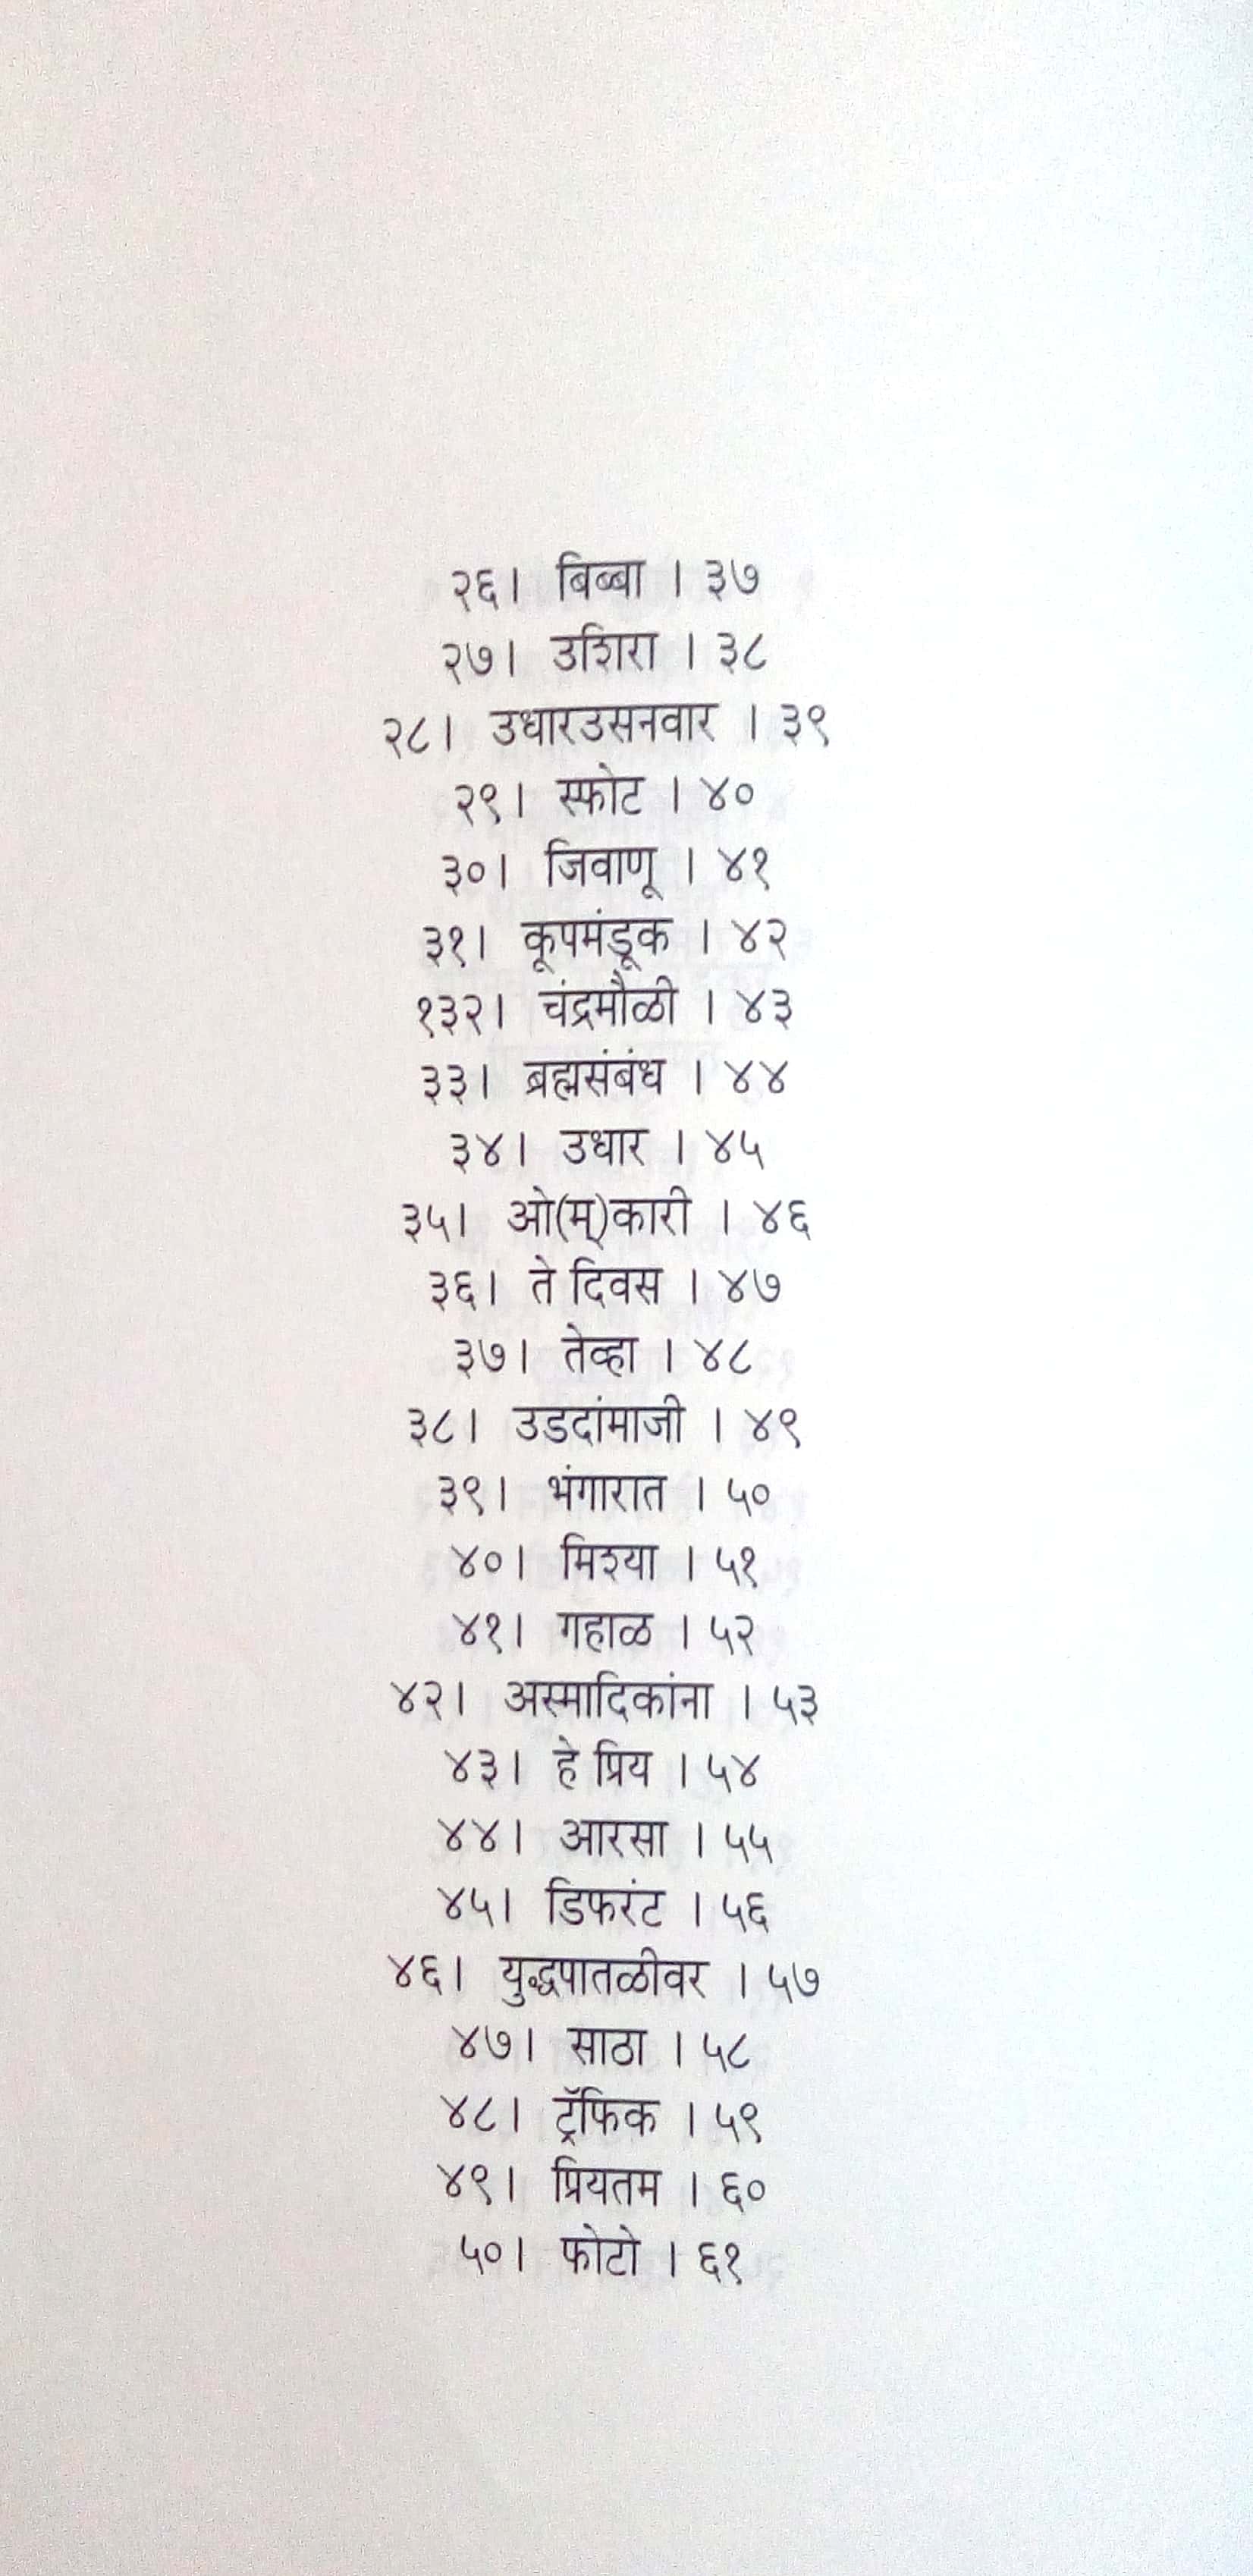 २६। बिब्बा । ३७
२७। उशिरा । ३८
२८। उधारउसनवार । ३९
२९। स्फोट । ४०
३०। जिवाणू । ४१
३१। कूपमंडूक । ४२
१३२। चंद्रमौळी । ४३
३३। ब्रह्मसंबंध । ४४
३४। उधार । ४५
३५। ओ(म्)कारी । ४६
३६। ते दिवस । ४७
३७। तेव्हा । ४८
३८। उडदांमाजी । ४९
३९। भंगारात । ५०
४०। मिश्या । ५१
४१। गहाळ । ५२
४२। अस्मादिकांना । ५३
४३। हे प्रिय । ५४
४४। आरसा । ५५
४५। डिफरंट । ५६
४६। युद्धपातळीवर । ५७
४७। साठा । ५८
४८। ट्रॅफिक । ५९
४९। प्रियतम । ६०
५०। फोटो । ६१